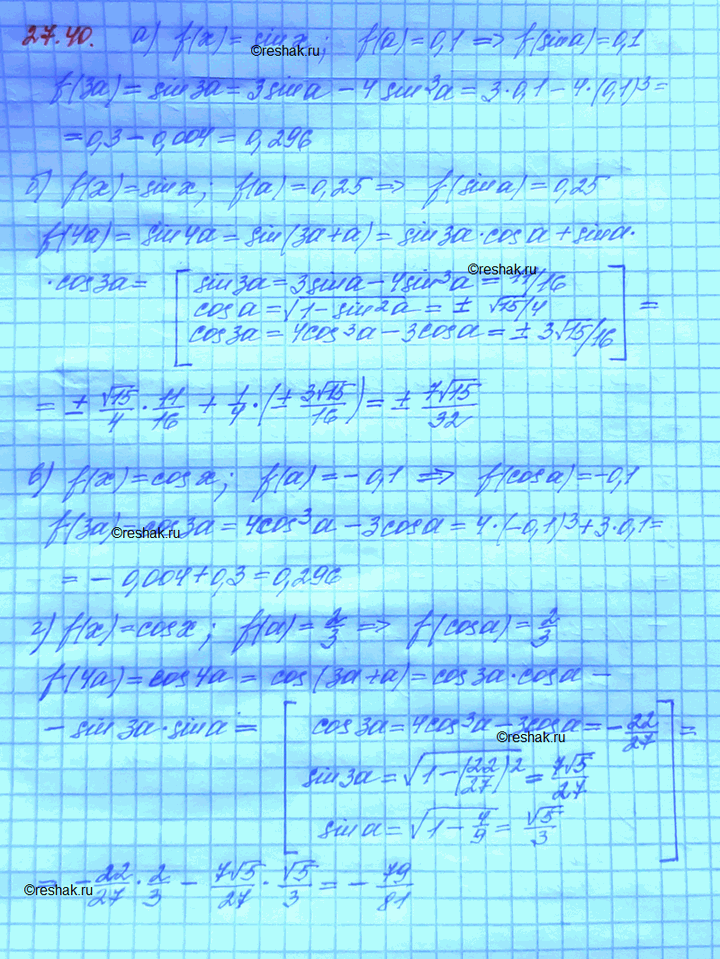 27.40. а) f(x) = sin x; f(a) = 0,1 => f(sin a) = 0,1
©reshak.ru
f(3a) = sin 3a = 3 sin a - 4 sin³a = 3·0,1 - 4·(0,1)³ =
= 0,3 - 0,004 = 0,296
б) f(x) = sin x; f(a) = 0,25 => f(sin a) = 0,25
f(4a) = sin 4a = sin(3a+a) = sin 3a · cos a + sin a ·
©reshak.ru
· cos 3a = [ sin 3a = 3 sin a - 4 sin³a = 11/16
cos a = √(1 - sin²a) = ± √15/4
cos 3a = 4cos³a - 3cos a = ± 3√15/16 ] =
= ± √15/4 · 11/16 + 1/4 · (± 3√15/16) = ± 7√15/32
в) f(x) = cos x; f(a) = -0,1 => f(cos a) = -0,1
f(3a) = cos 3a = 4cos³a - 3cos a = 4·(-0,1)³ + 3·0,1 =
©reshak.ru
= - 0,004 + 0,3 = 0,296
г) f(x) = cos x; f(a) = 2/3 => f(cos a) = 2/3
f(4a) = cos 4a = cos(3a+a) = cos 3a · cos a -
- sin 3a · sin a = [ cos 3a = 4cos³a - 3cos a = - 22/27
©reshak.ru
sin 3a = √(1 - (22/27)²) = 7√5/27
sin a = √(1 - 4/9) = √5/3 ] =
= - 22/27 · 2/3 - 7√5/27 · √5/3 = - 79/81
©reshak.ru